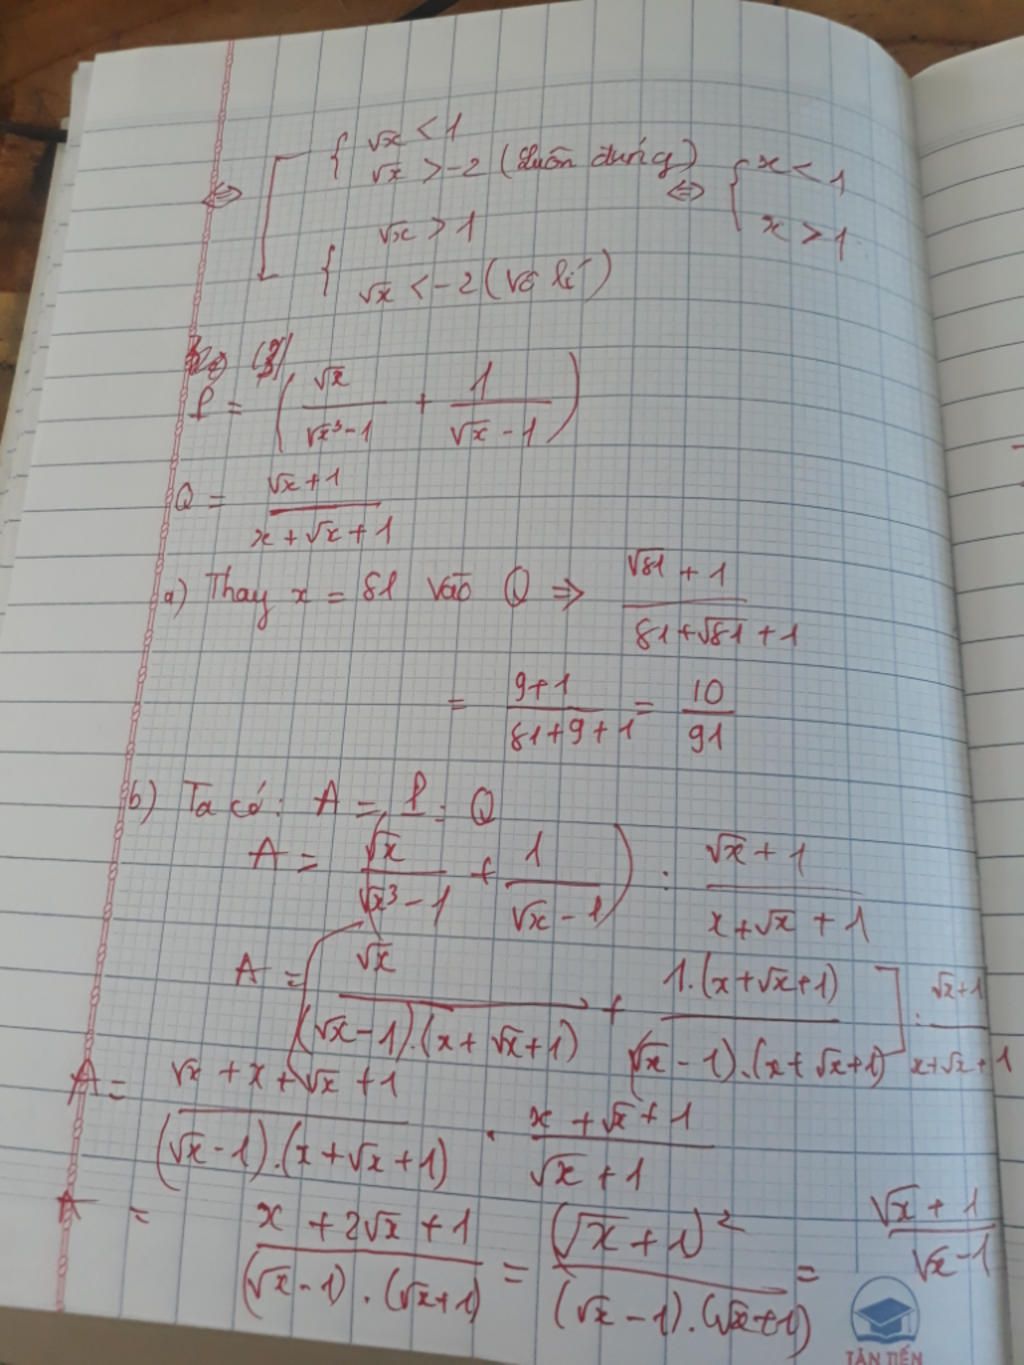 ⇔ [ { √x < 1
√x > -2 (luôn đúng) ⇔ { x < 1
{ √x > 1 x > 1
√x < -2 (vô lí)
P = ( √x / (√x³ - 1) + 1 / (√x - 1) )
Q = (√x + 1) / (x + √x + 1)
a) Thay x = 81 vào Q ⇒ (√81 + 1) / (81 + √81 + 1)
= (9+1) / (81+9+1) = 10 / 91
b) Ta có: A = P : Q
A = √x / (√x³ - 1) + 1 / (√x - 1) ) : (√x + 1) / (x + √x + 1)
A = [ √x / (√x - 1).(x + √x + 1) + 1.(x + √x + 1) / (√x - 1).(x + √x + 1) ] : (√x + 1) / (x + √x + 1)
A = (√x + x + √x + 1) / (√x - 1).(x + √x + 1) . (x + √x + 1) / (√x + 1)
A = (x + 2√x + 1) / (√x - 1).(√x + 1) = (√x + 1)² / (√x - 1).(√x + 1) = (√x + 1) / (√x - 1)
TÂN TIẾN